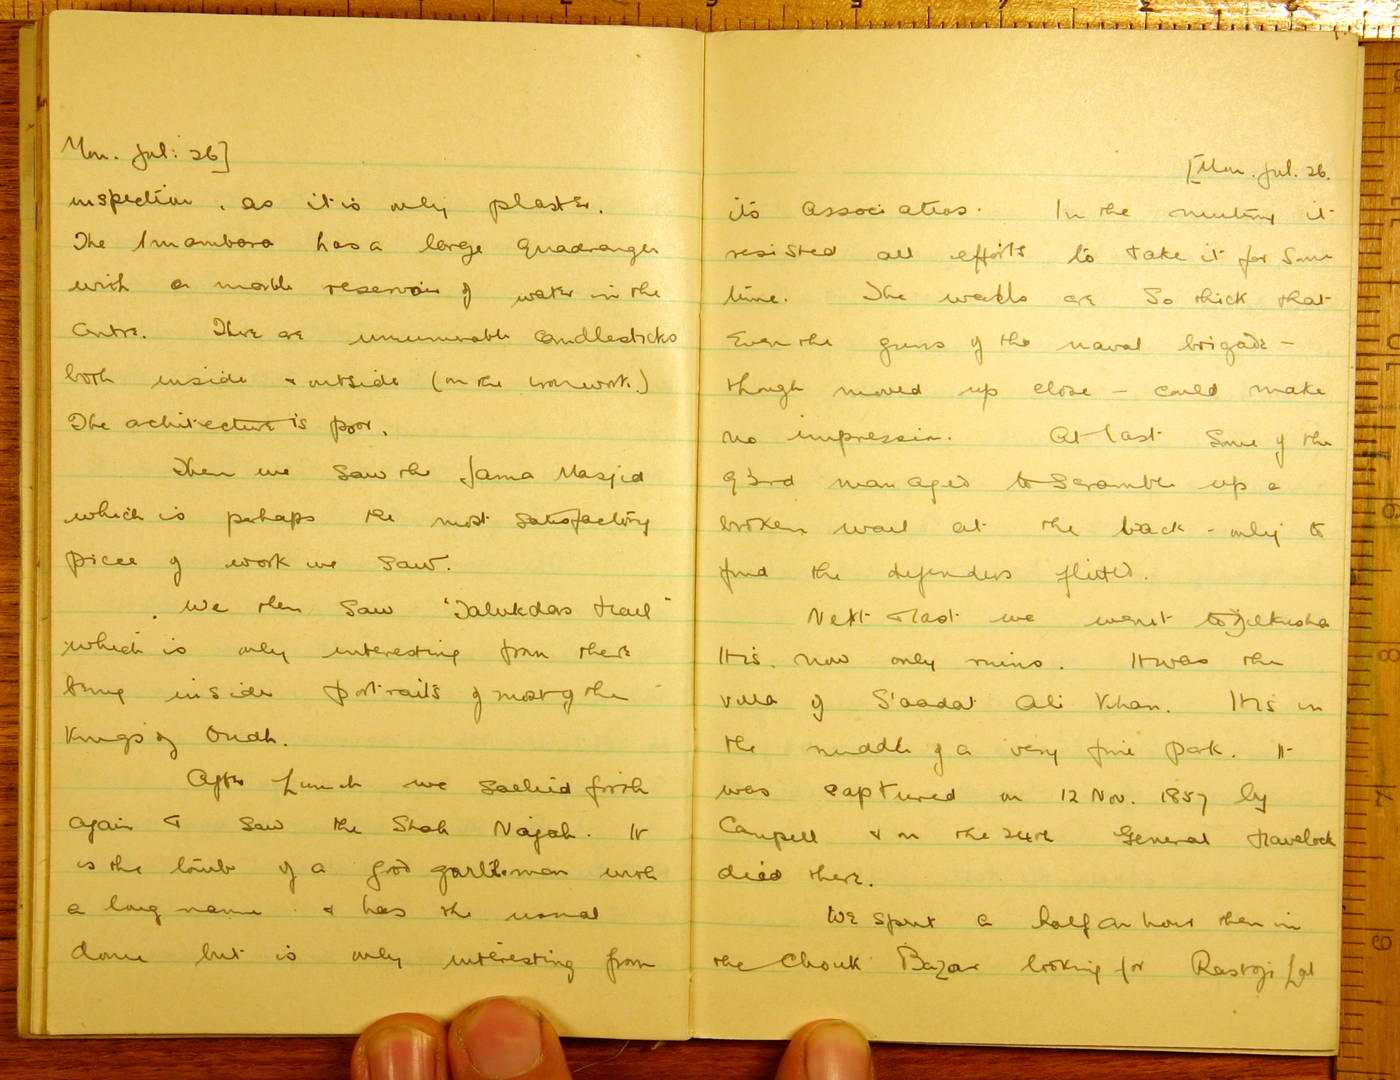 Mon. Jul: 26]
inspection, as it is only plaster.
The Imambara has a large quadrangle
with a marble reservoir of water in the
centre. There are innumerable candlesticks
both inside & outside (on the ironwork.)
The achitecture is poor.
Then we saw the Jama Masjid
which is perhaps the most satisfactory
piece of work we saw.
We then saw "Talukdars Hall"
which is only interesting from there
being inside portraits of most of the
Kings of Oudh.
After Lunch we sallied forth
again & saw the Shah Najah. It
is the tomb of a good gentleman with
a long name & has the usual
dome but is only interesting from
[Mon. Jul. 26.
its associations. In the mutiny it
resisted all efforts to take it for some
time. The walls are so thick that
even the guns of the naval brigade -
though moved up close - could make
no impression. At last some of the
93rd managed to scramble up a
broken wall at the back - only to
find the defenders flitted.
Next & last we went to Dilkusha
It is now only ruins. It was the
villa of S'aadat Ali Khan. It is in
the middle of a very fine park. It
was captured on 12 Nov. 1857 by
Campell & on the 24th General Havelock
died there.
We spent a half an hour then in
the Chouk Bazar looking for Rastogi Lal